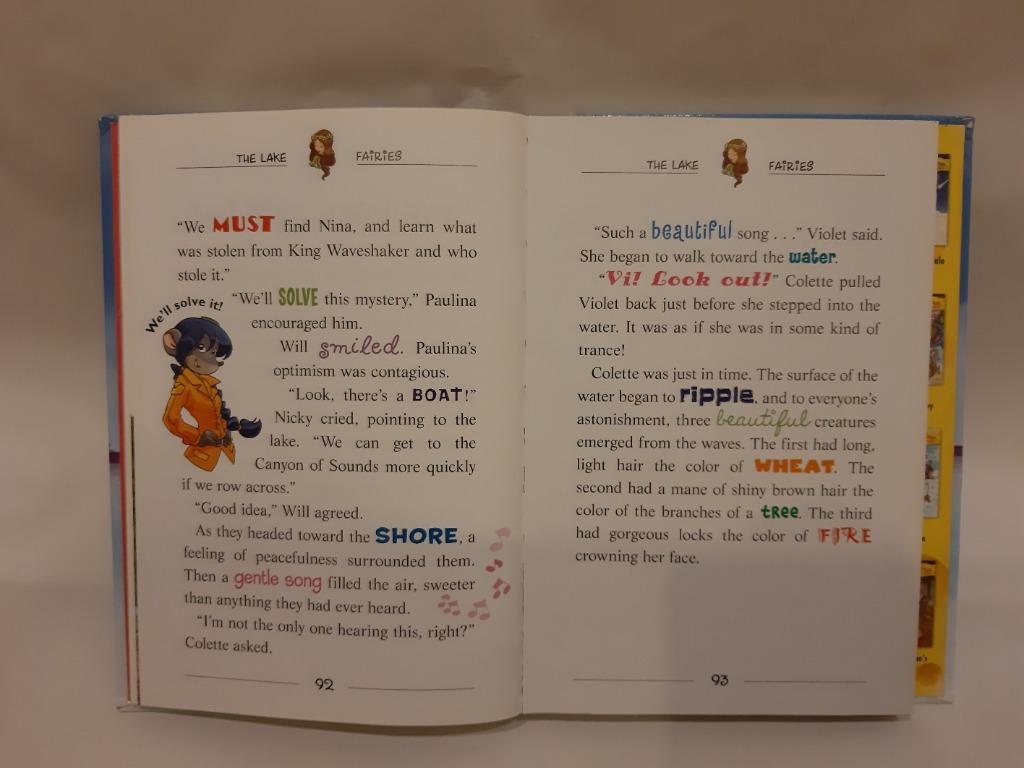 THE LAKE FAIRIES
"We MUST find Nina, and learn what
was stolen from King Waveshaker and who
stole it."
We'll solve it!
"We'll SOLVE this mystery," Paulina
encouraged him.
Will smiled. Paulina's
optimism was contagious.
"Look, there's a BOAT!"
Nicky cried, pointing to the
lake. "We can get to the
Canyon of Sounds more quickly
if we row across."
"Good idea," Will agreed.
As they headed toward the SHORE, a
feeling of peacefulness surrounded them.
Then a gentle song filled the air, sweeter
than anything they had ever heard.
"I'm not the only one hearing this, right?"
Colette asked.
92
THE LAKE FAIRIES
"Such a beautiful song . . ." Violet said.
She began to walk toward the water.
"Vi! Look out!" Colette pulled
Violet back just before she stepped into the
water. It was as if she was in some kind of
trance!
Colette was just in time. The surface of the
water began to ripple, and to everyone's
astonishment, three beautiful creatures
emerged from the waves. The first had long,
light hair the color of WHEAT. The
second had a mane of shiny brown hair the
color of the branches of a tree. The third
had gorgeous locks the color of FIRE
crowning her face.
93